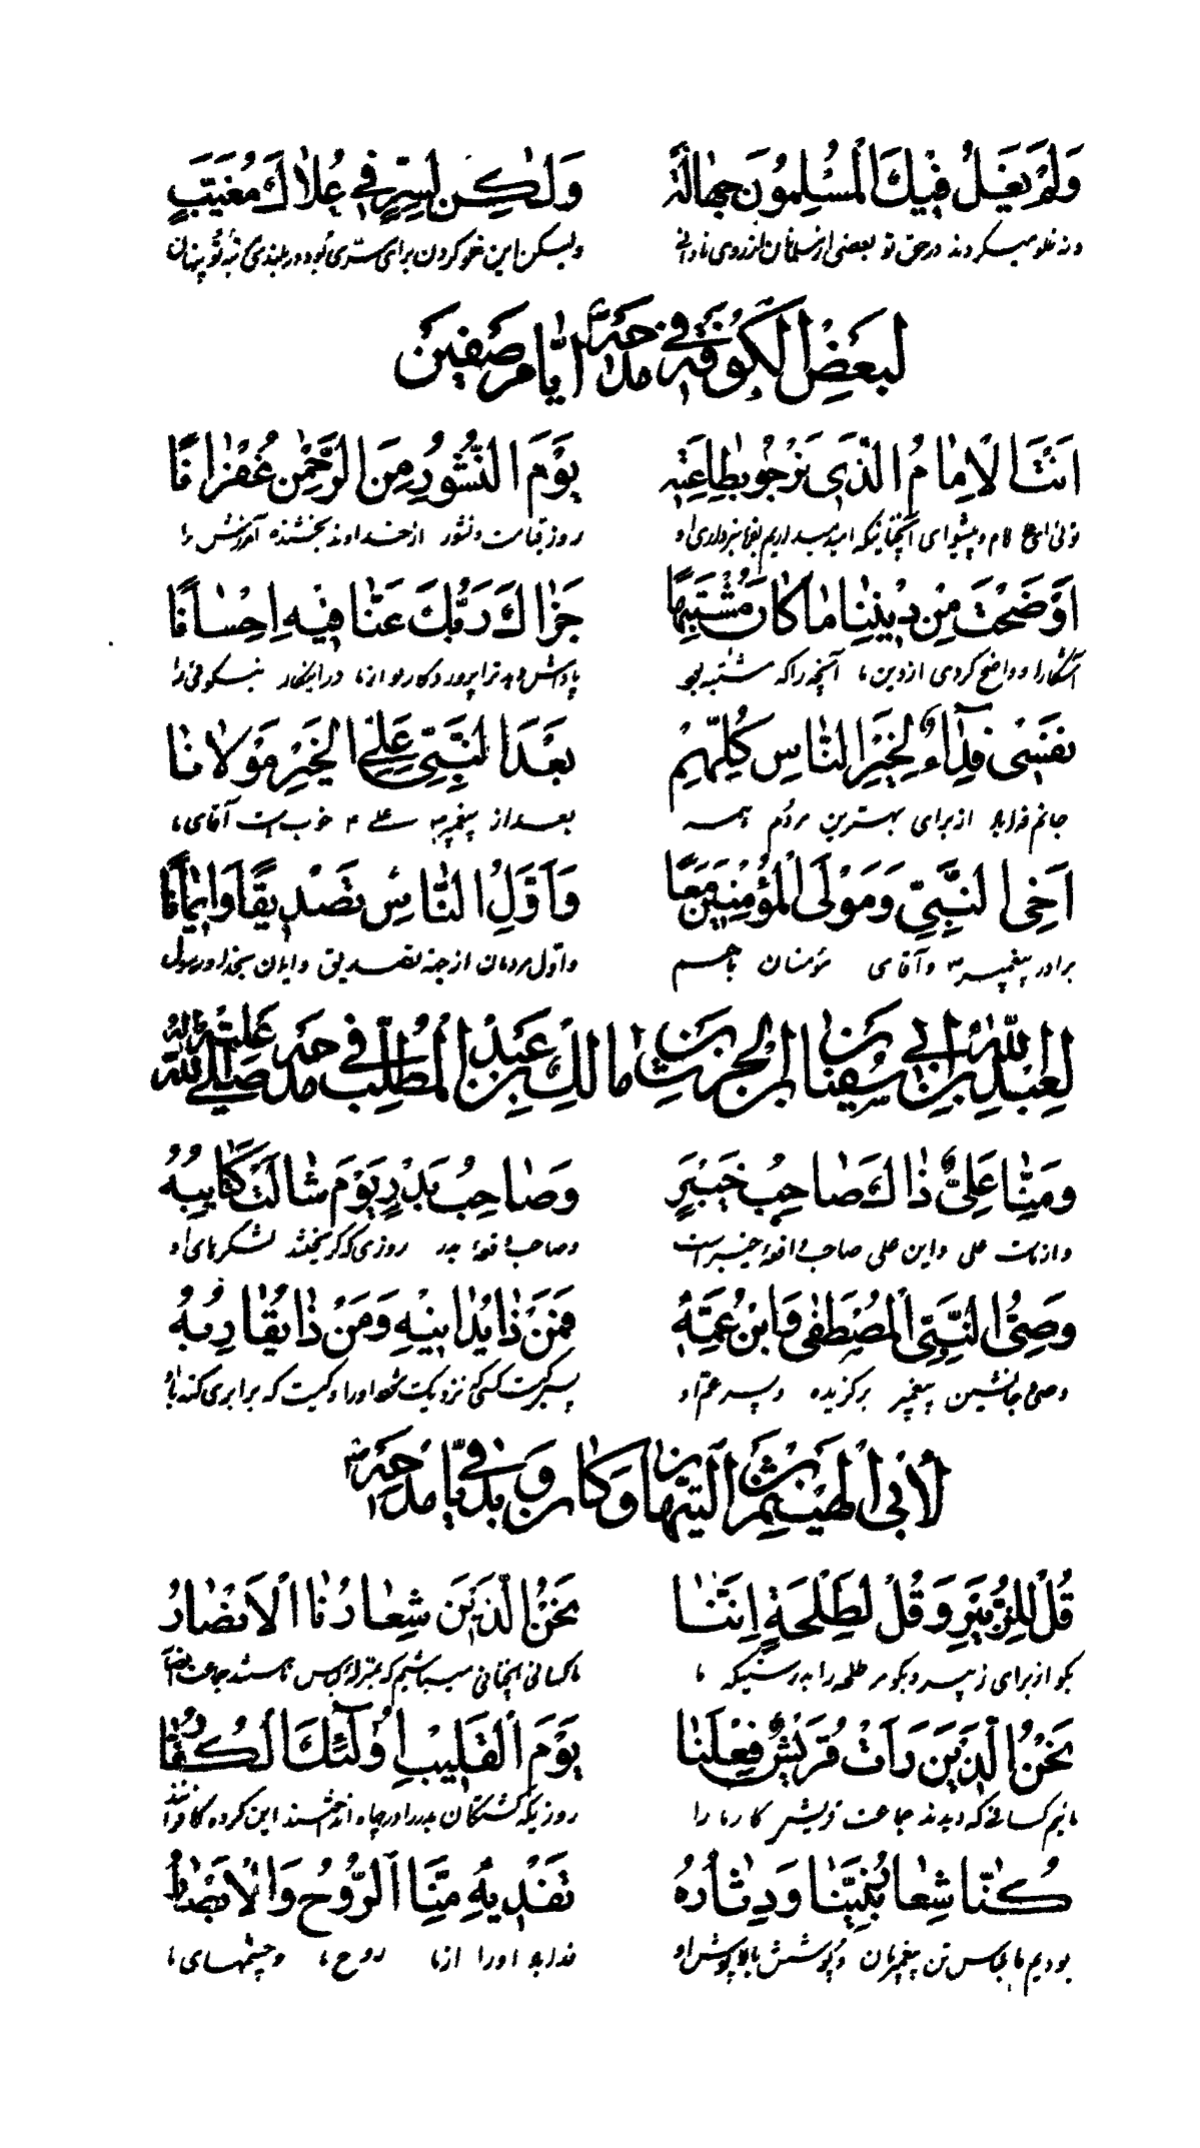 وَلَمْ يَغْلُ فِيكَ الْمُسْلِمُونَ جَهَالَةً وَلٰكِنْ لِسِرٍّ فِي عُلَاكَ مُغَيَّبِ
ونه غلو میکردند در حق تو بعضی از مسلمانان از روی نادانی ولیکن این غلو کردن برای سری بود در بلندی مرتبه تو پنهان
لِبَعْضِ الْكُوفَةِ فِي مَدْحِهِ ع اَيَّامِ صِفِّينَ
اَنْتَ الْاِمَامُ الَّذِي نَرْجُو بِطَاعَتِهِ يَوْمَ النُّشُورِ مِنَ الرَّحْمٰنِ غُفْرَانًا
توئی امام و پیشوای آنچنانیکه امید میداریم بفرمانبرداری او روز قیامت و نشور از خداوند بخشنده آمرزش را
اَوْضَحْتَ مِنْ دِيْنِنَا مَا كَانَ مُشْتَبِهًا جَزَاكَ رَبُّكَ عَنَّا فِيهِ اِحْسَانًا
آشکارا و واضح کردی از دین ما آنچه را که مشتبه بود پاداش دهد ترا پروردگار تو از ما در اینکار نیکوئی را
نَفْسِي فِدَاءٌ لِخَيْرِ النَّاسِ كُلِّهِمْ بَعْدَ النَّبِيِّ عَلِيِّ الْخَيْرِ مَوْلَانَا
جانم فدا باد از برای بهترین مردم همه بعد از پیغمبر ص علی ع خوب است آقای ما
اَخِي النَّبِيِّ وَمَوْلَى الْمُؤْمِنِينَ مَعًا وَاَوَّلِ النَّاسِ تَصْدِيقًا وَاِيْمَانًا
برادر پیغمبر ص و آقای مؤمنان باهم و اول مردمان از جهة تصدیق و ایمان بخدا و رسول
لِعَبْدِ اللّٰهِ بْنِ اَبِي سُفْيَانَ بْنِ الْحَرْثِ بْنِ مَالِكِ بْنِ عَبْدِ الْمُطَّلِبِ فِي مَدْحِهِ صَلَّى اللّٰهُ عَلَيْهِ وَاٰلِهِ
وَمِنَّا عَلِيٌّ ذَاكَ صَاحِبُ خَيْبَرٍ وَصَاحِبُ بَدْرٍ يَوْمَ سَالَتْ كَتَايِبُهُ
و از ماست علی و این علی صاحب واقعهٔ خیبر است و صاحب واقعهٔ بدر روزی که گریختند لشکرهای او
وَصِيُّ النَّبِيِّ الْمُصْطَفٰى وَابْنُ عَمِّهِ فَمَنْ ذَا يُدَانِيْهِ وَمَنْ ذَا يُقَارِبُهُ
وصی و جانشین پیغمبر برگزیده و پسر عم او پس کیست کسیکه نزدیک شود او را و کیست که برابری کند با او
لِاَبِي الْهَيْثَمِ بْنِ التَّيِّهَانِ وَكَانَ بَدْرِيًّا فِي مَدْحِهِ ع
قُلْ لِلزُّبَيْرِ وَقُلْ لِطَلْحَةٍ اِنَّنَا نَحْنُ الَّذِيْنَ شِعَارُنَا الْاَنْصَارُ
بگو از برای زبیر و بگو مر طلحه را بدرستیکه ما ما کسانی آنچنانی میباشیم که لباس ما هستند جماعت انصار
نَحْنُ الَّذِيْنَ رَاَتْ قُرَيْشٌ فِعْلَنَا يَوْمَ الْقَلِيْبِ اُولٰئِكَ الْكُفَّارُ
مائیم کسانی که دیدند جماعت قریش کار ما را روزیکه کشتگان بدر را در چاه انداختند این گروه کافران
كُنَّا شِعَارَ نَبِيِّنَا وَدِثَارَهُ تَفْدِيهِ مِنَّا الرُّوحُ وَالْاَبْصَارُ
بودیم ما لباس تن پیغمبرمان و پوشش بالاپوش او فدا باد او را از ما روح ما و چشمهای ما